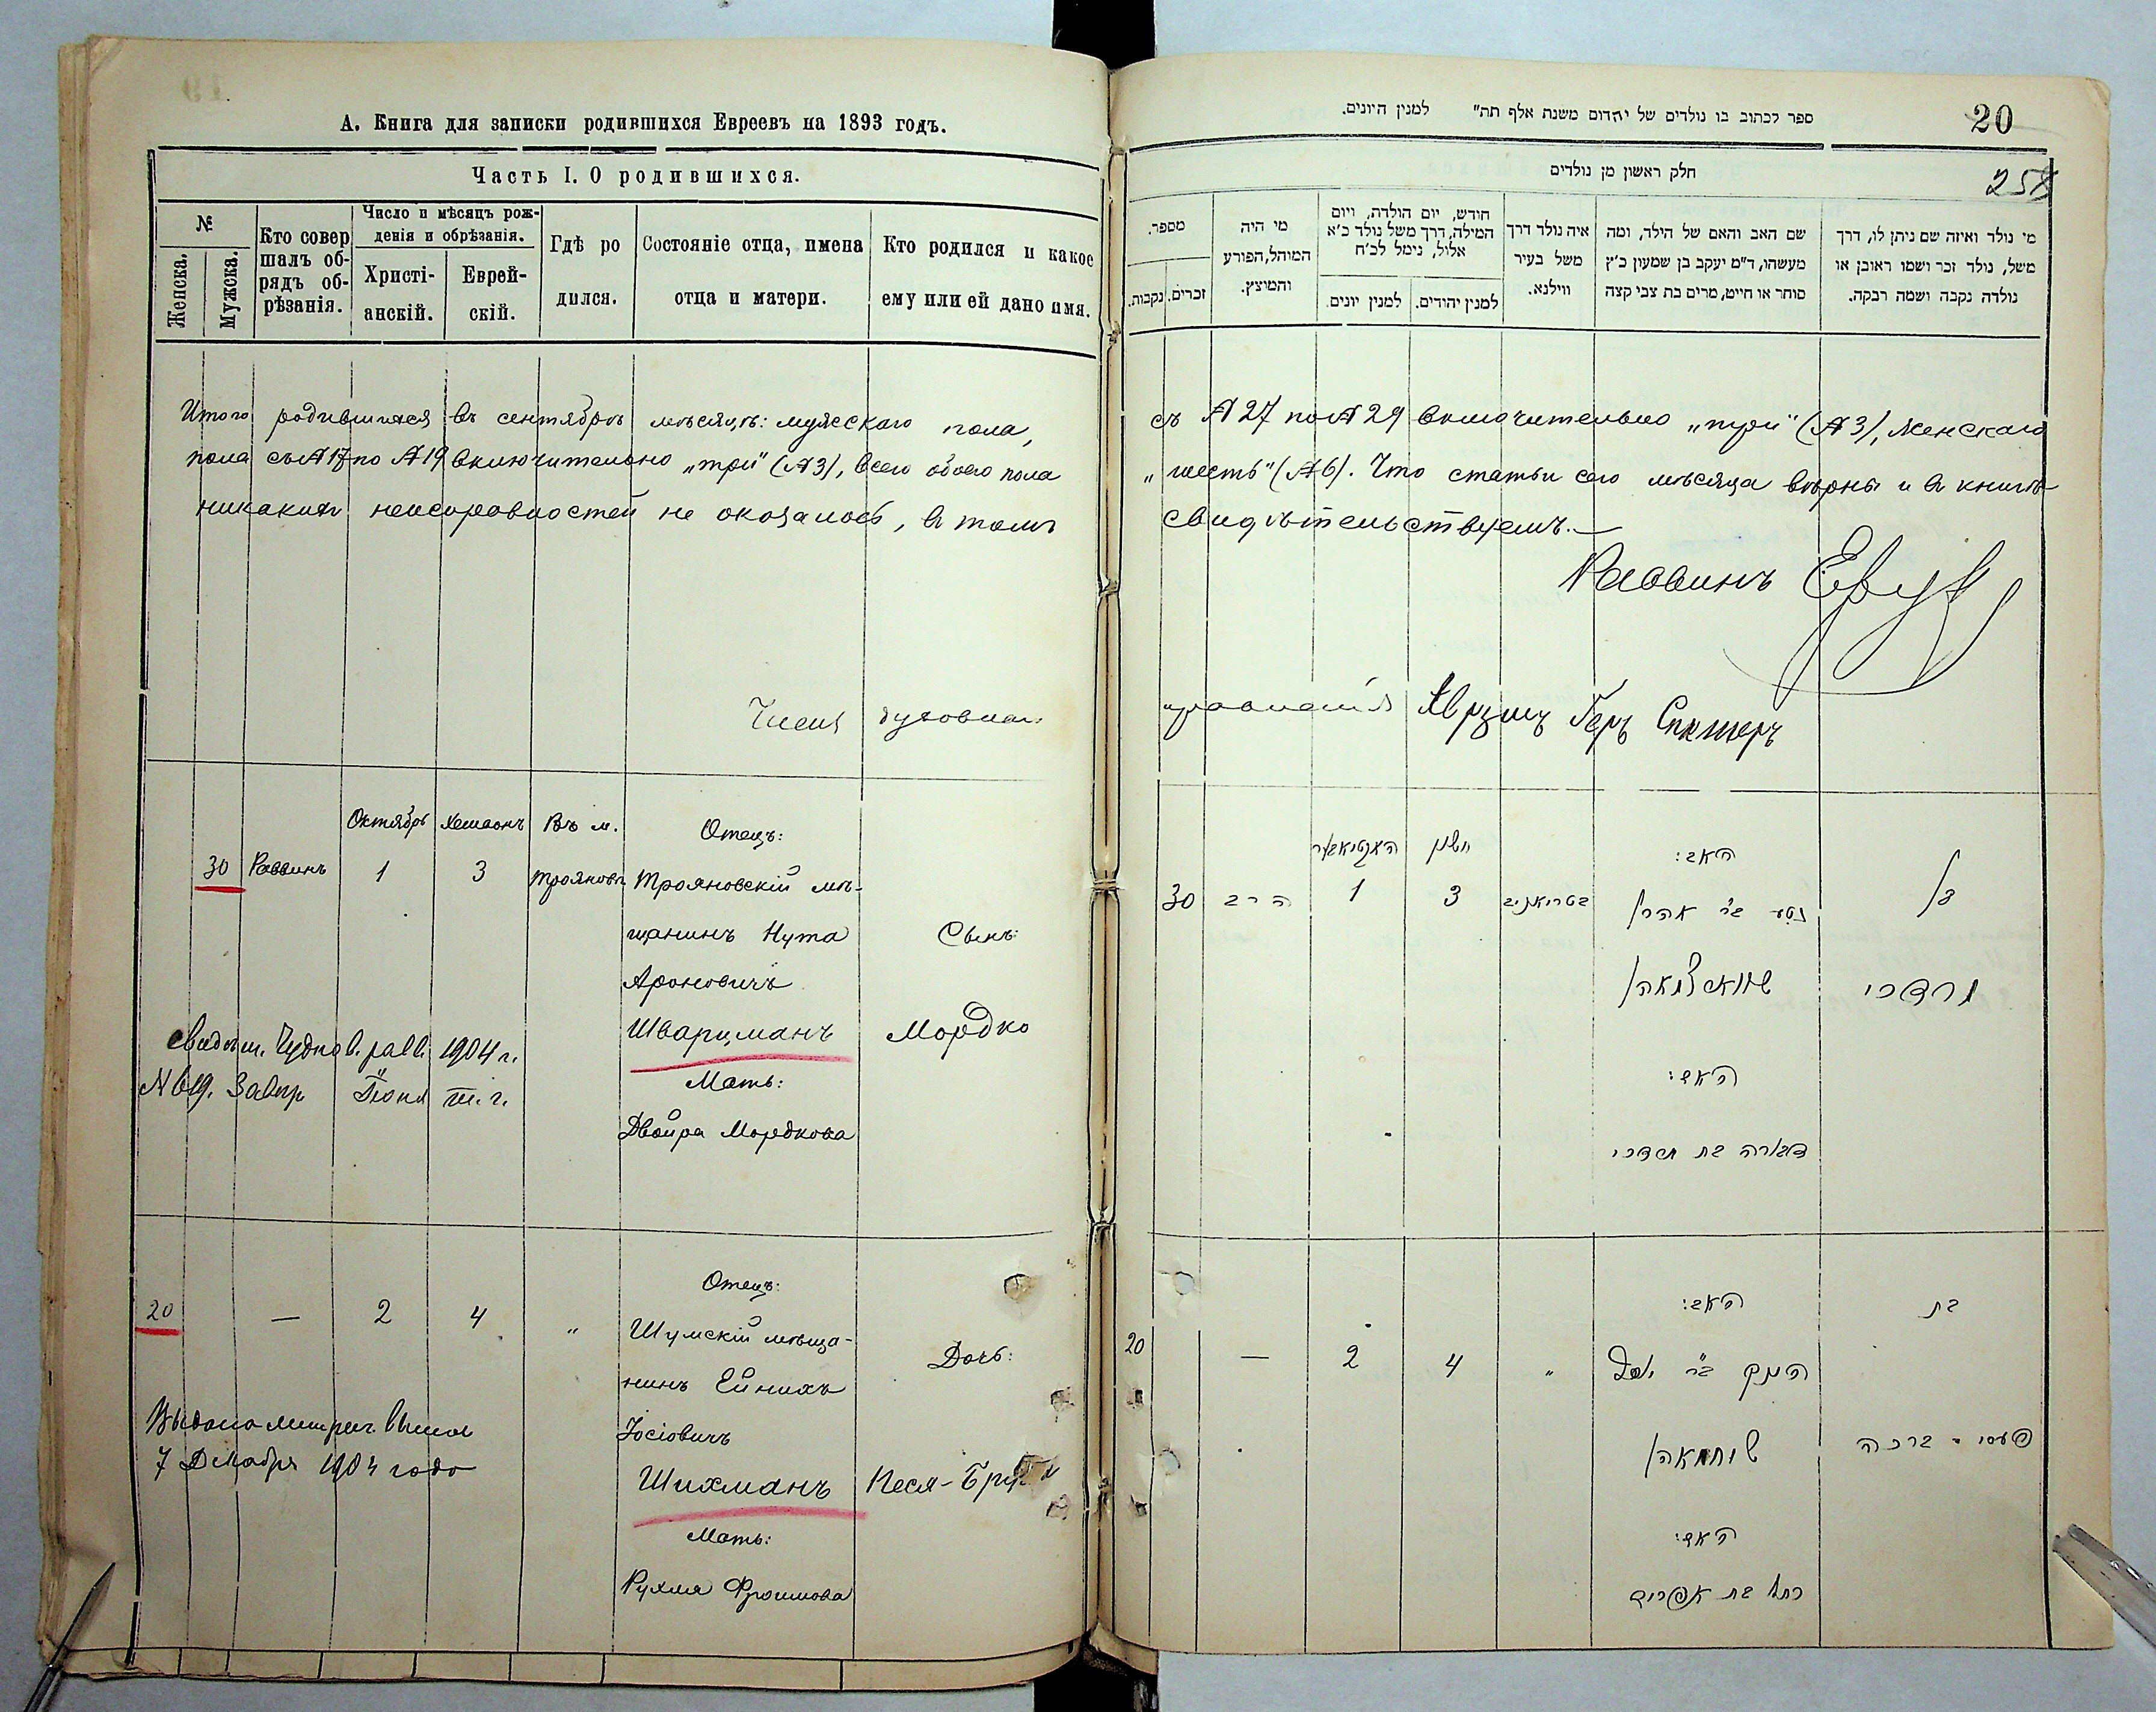 А. Книга для записки родившихся Евреевъ на 1893 годъ.
Часть I. О родившихся.
№
Женска.
Мужска.
Кто совер
шалъ об-
рядъ об-
рѣзанія.
Число и мѣсяцъ рож-
денія и обрѣзанія.
Христі-
анскій.
Еврей-
скій.
Гдѣ ро
дился.
Состояніе отца, имена
отца и матери.
Кто родился и какое
ему или ей дано имя.
Итого родившихся въ сентябрѣ мѣсяцѣ: мужескаго пола,
пола съ №17 по №19 включительно „три" (№3), всего обоего пола
никакихъ неисправностей не оказалось, въ томъ
Члены духовнаго
Октябрь Хешвонъ Въ м. Отецъ:
30 Раввинъ 1 3 Трояновѣ Трояновскій мѣ-
щанинъ Нута Сынъ:
Ароновичъ
Шварцманъ Мордко
Свидѣт. Чудно в. равв. 1904 г.
Мать:
№ 619. Іюня т. г.
Двойра Мордкова
Отецъ:
20 — 2 4 „ Шумскій мѣща-
нинъ Ейнихъ Дочь:
Іосіовичъ
Выдана метрич. выпись
7 Декабря 1904 года
Шихманъ Песя-
Мать:
Рухля Фроимова
ספר לכתוב בו נולדים של יהדום משנת אלף תת" למנין היונים.
20
חלק ראשון מן נולדים
258
מספר.
נקבות.
זכרים.
מי היה
המוהל, הפורע
והמוצץ.
חודש, יום הולדה, ויום
המילה, דרך משל נולד כ'א
אליל, נימל לכ'ח
למנין יונים.
למנין יהודים.
איה נולד דרך
משל בעיר
ווילנא.
שם האב והאם של הילד, ומה
מעשהו, ד"מ יעקב בן שמעון כ'ץ
סוחר או חייט, מרים בת צבי קצה
מי נולד ואיזה שם ניתן לו, דרך
משל, נולד זכר ושמו ראובן או
נולדה נקבה ושמה רבקה.
съ №27 по №29 включительно „три" (№3), женскаго
„шесть" (№6). Что статьи сего мѣсяца вѣрны и въ книгѣ
свидѣтельствуемъ.—
Раввинъ
правленія
חשון
האב:
30 הרב 1 3 נטע ב"ר אהרן בן
שווארצמאן מרדכי
האם:
דבורה בת מרדכי
האב: בת
20 — 2 4 „ העניך ב"ר יוסף
שיחמאן פעסי - ברכה
האם:
רחל בת אפרים